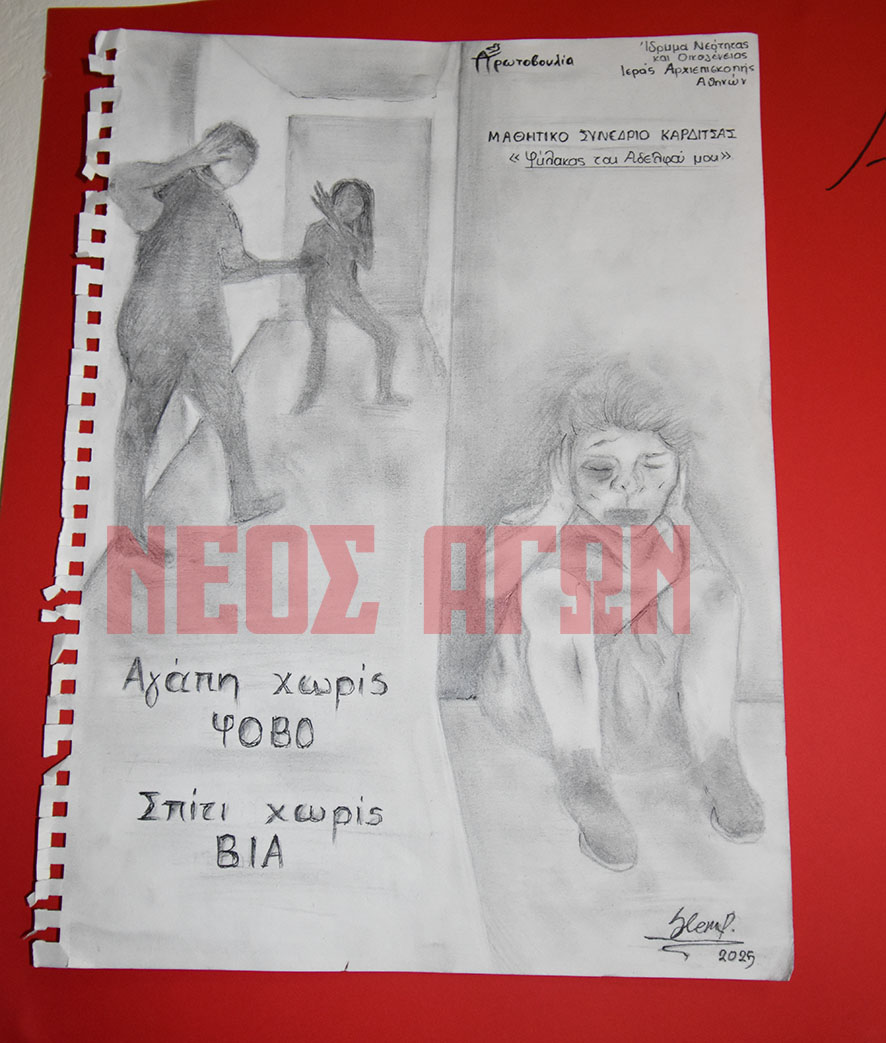 Πρωτοβουλία
Ίδρυμα Νεότητας
και Οικογένειας
Ιεράς Αρχιεπισκοπής
Αθηνών
ΜΑΘΗΤΙΚΟ ΣΥΝΕΔΡΙΟ ΚΑΡΔΙΤΣΑΣ
«Φύλακας του Αδελφού μου»
ΝΕΟΣ ΑΓΩΝ
Αγάπη χωρίς
ΦΟΒΟ
Σπίτι χωρίς
ΒΙΑ
2025